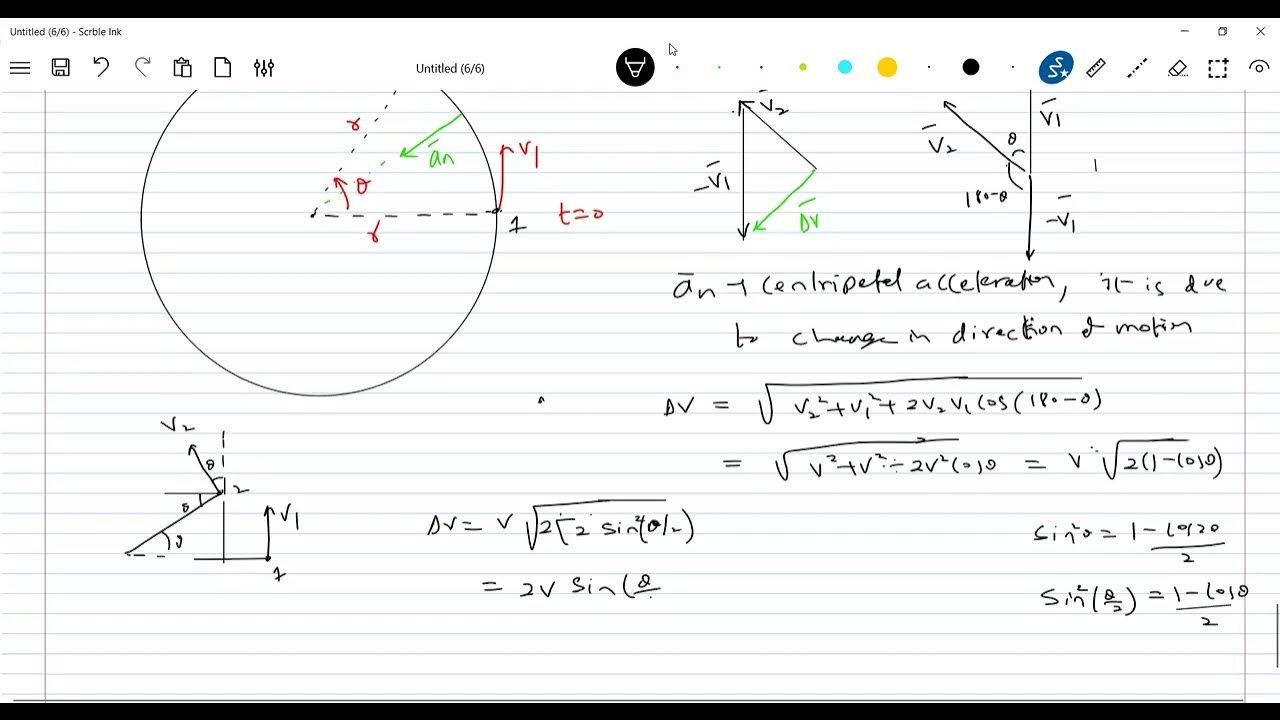 Untitled (6/6) - Scrble Ink
Untitled (6/6)
r
a̅n
θ
V1
r
1
t=0
V̅2
-V̅1
D̅V
V̅1
V̅2
θ
180-θ
-V̅1
a̅n → Centripetal acceleration, it is due
to change in direction of motion
ΔV = √(V2² + V1² + 2V2V1 Cos(180-θ))
= √(V² + V² - 2V² Cosθ) = V √(2(1-Cosθ))
V2
θ
2
θ
θ
V1
1
ΔV = V √(2[2 Sin²(θ/2)
= 2V Sin(θ/
Sin²θ = (1-Cos2θ)/2
Sin²(θ/2) = (1-Cosθ)/2